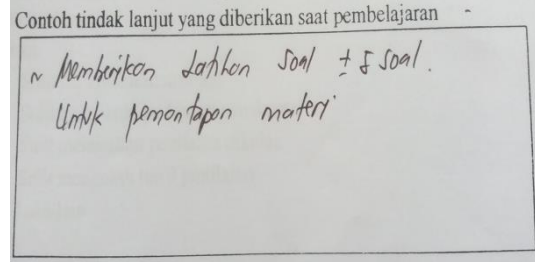 Contoh tindak lanjut yang diberikan saat pembelajaran -
~ Memberikan Latihan Soal ± 5 soal.
Untuk pemantapan materi